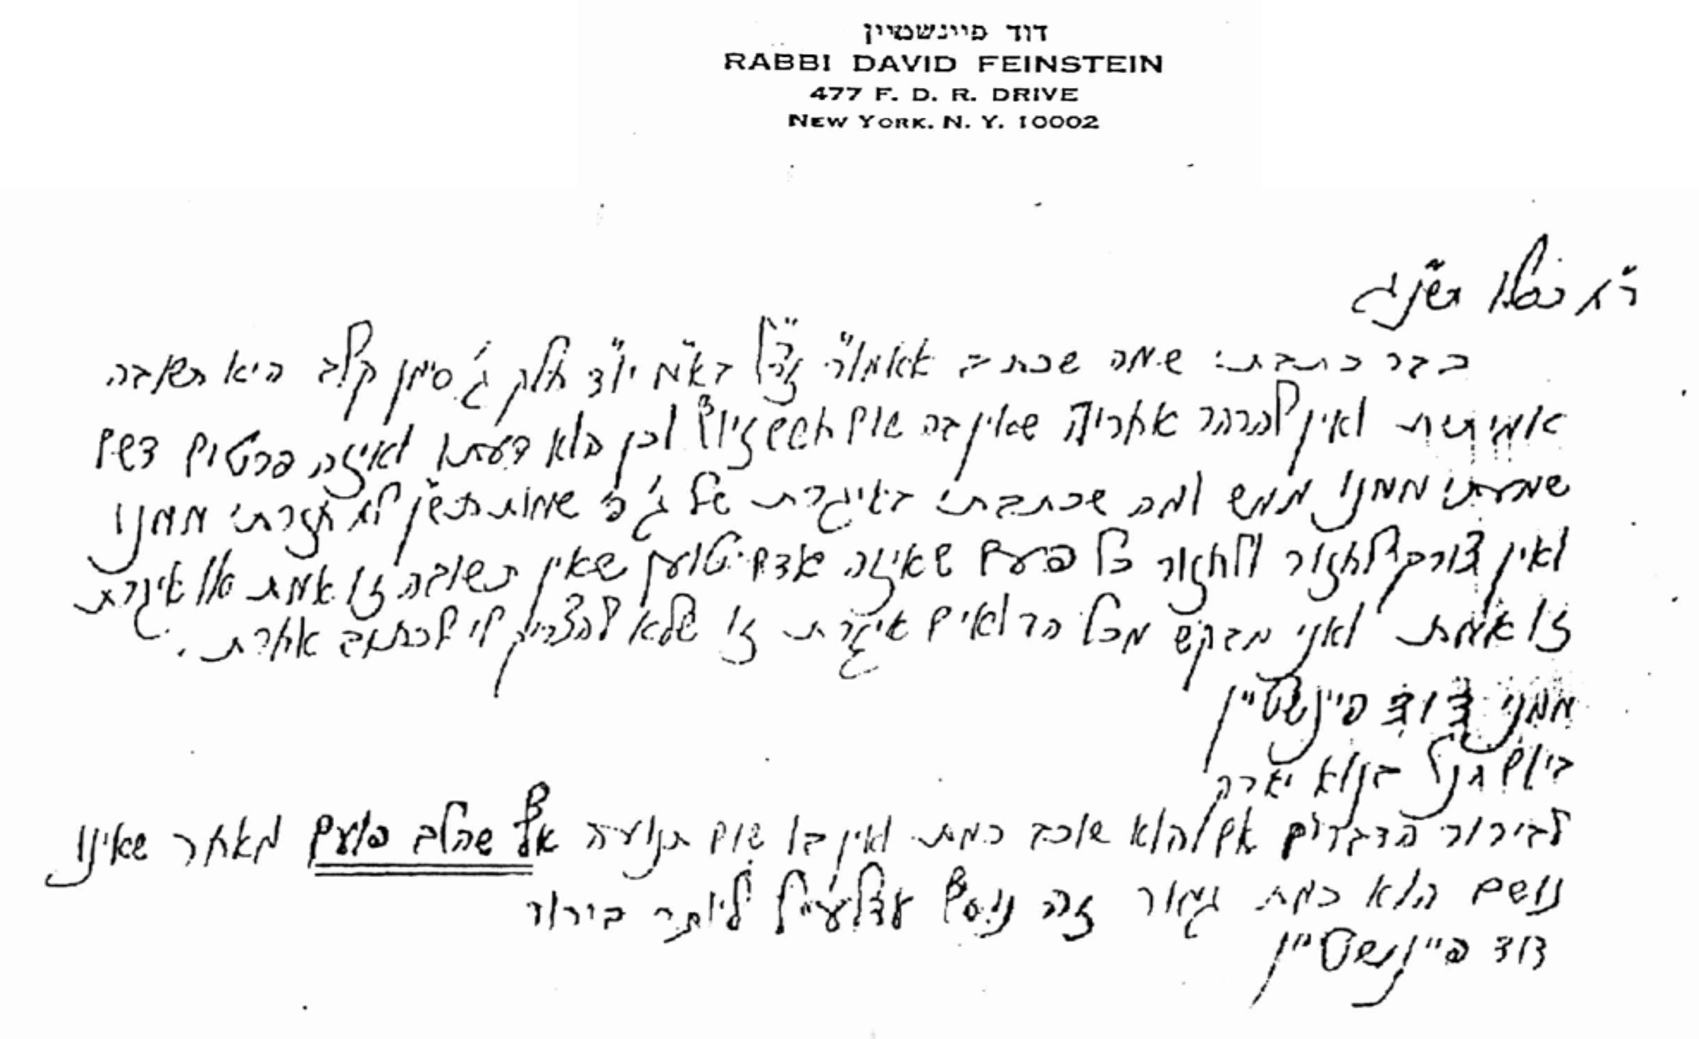 דוד פיינשטיין
RABBI DAVID FEINSTEIN
477 F. D. R. DRIVE
NEW YORK, N. Y. 10002
כסלו תשנ"ג
כבר כתבתי שמה שכתב אאמו"ר זצ"ל באג"מ יו"ד חלק ג' סימן קל"ב היא תשובה
אמיתית ואין להרהר אחריה שאין בה שום חשש זיוף וכן הוא דעתו ואיזה פרטים דשם
שמעתי ממנו ממש ומה שכתבתי באיגרת של ג' פ' שמות תש"ן לא חזרתי ממנו
ואין צורך לחזור ולחזור כל פעם שאיזה אדם טוען שאין תשובה זו אמת או איגרת
זו אמת ואני מבקש מכל הרואים איגרת זו שלא להצריך לי לכתוב אחרת.
ממני דוד פיינשטיין
ביום הנ"ל בנוא יארק
לבירור הדברים אם הוא שוכב כמת ואין בו שום תנועה אף שהלב פועם מאחר שאינו
נושם הוא כמת גמור זה נוסף ליותר בירור
דוד פיינשטיין